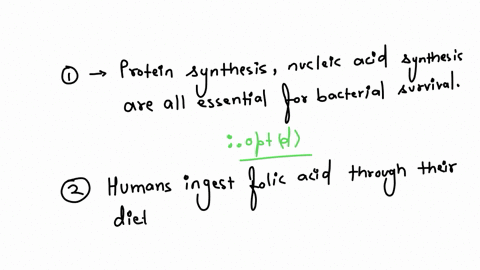 ① → Protein synthesis, nucleic acid synthesis
are all essential for bacterial survival.
∴ opt(d)
② Humans ingest folic acid through their
diet